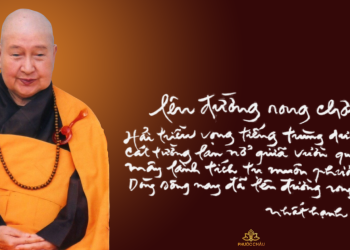 lên đường rong chơi
Hải triều vọng tiếng trùng
Cát tường lan nở giữa vườn
mây lành tích tụ muôn
Dòng sông nay đã lên đường rong
nhất hạnh
PHƯỚC CHÂU